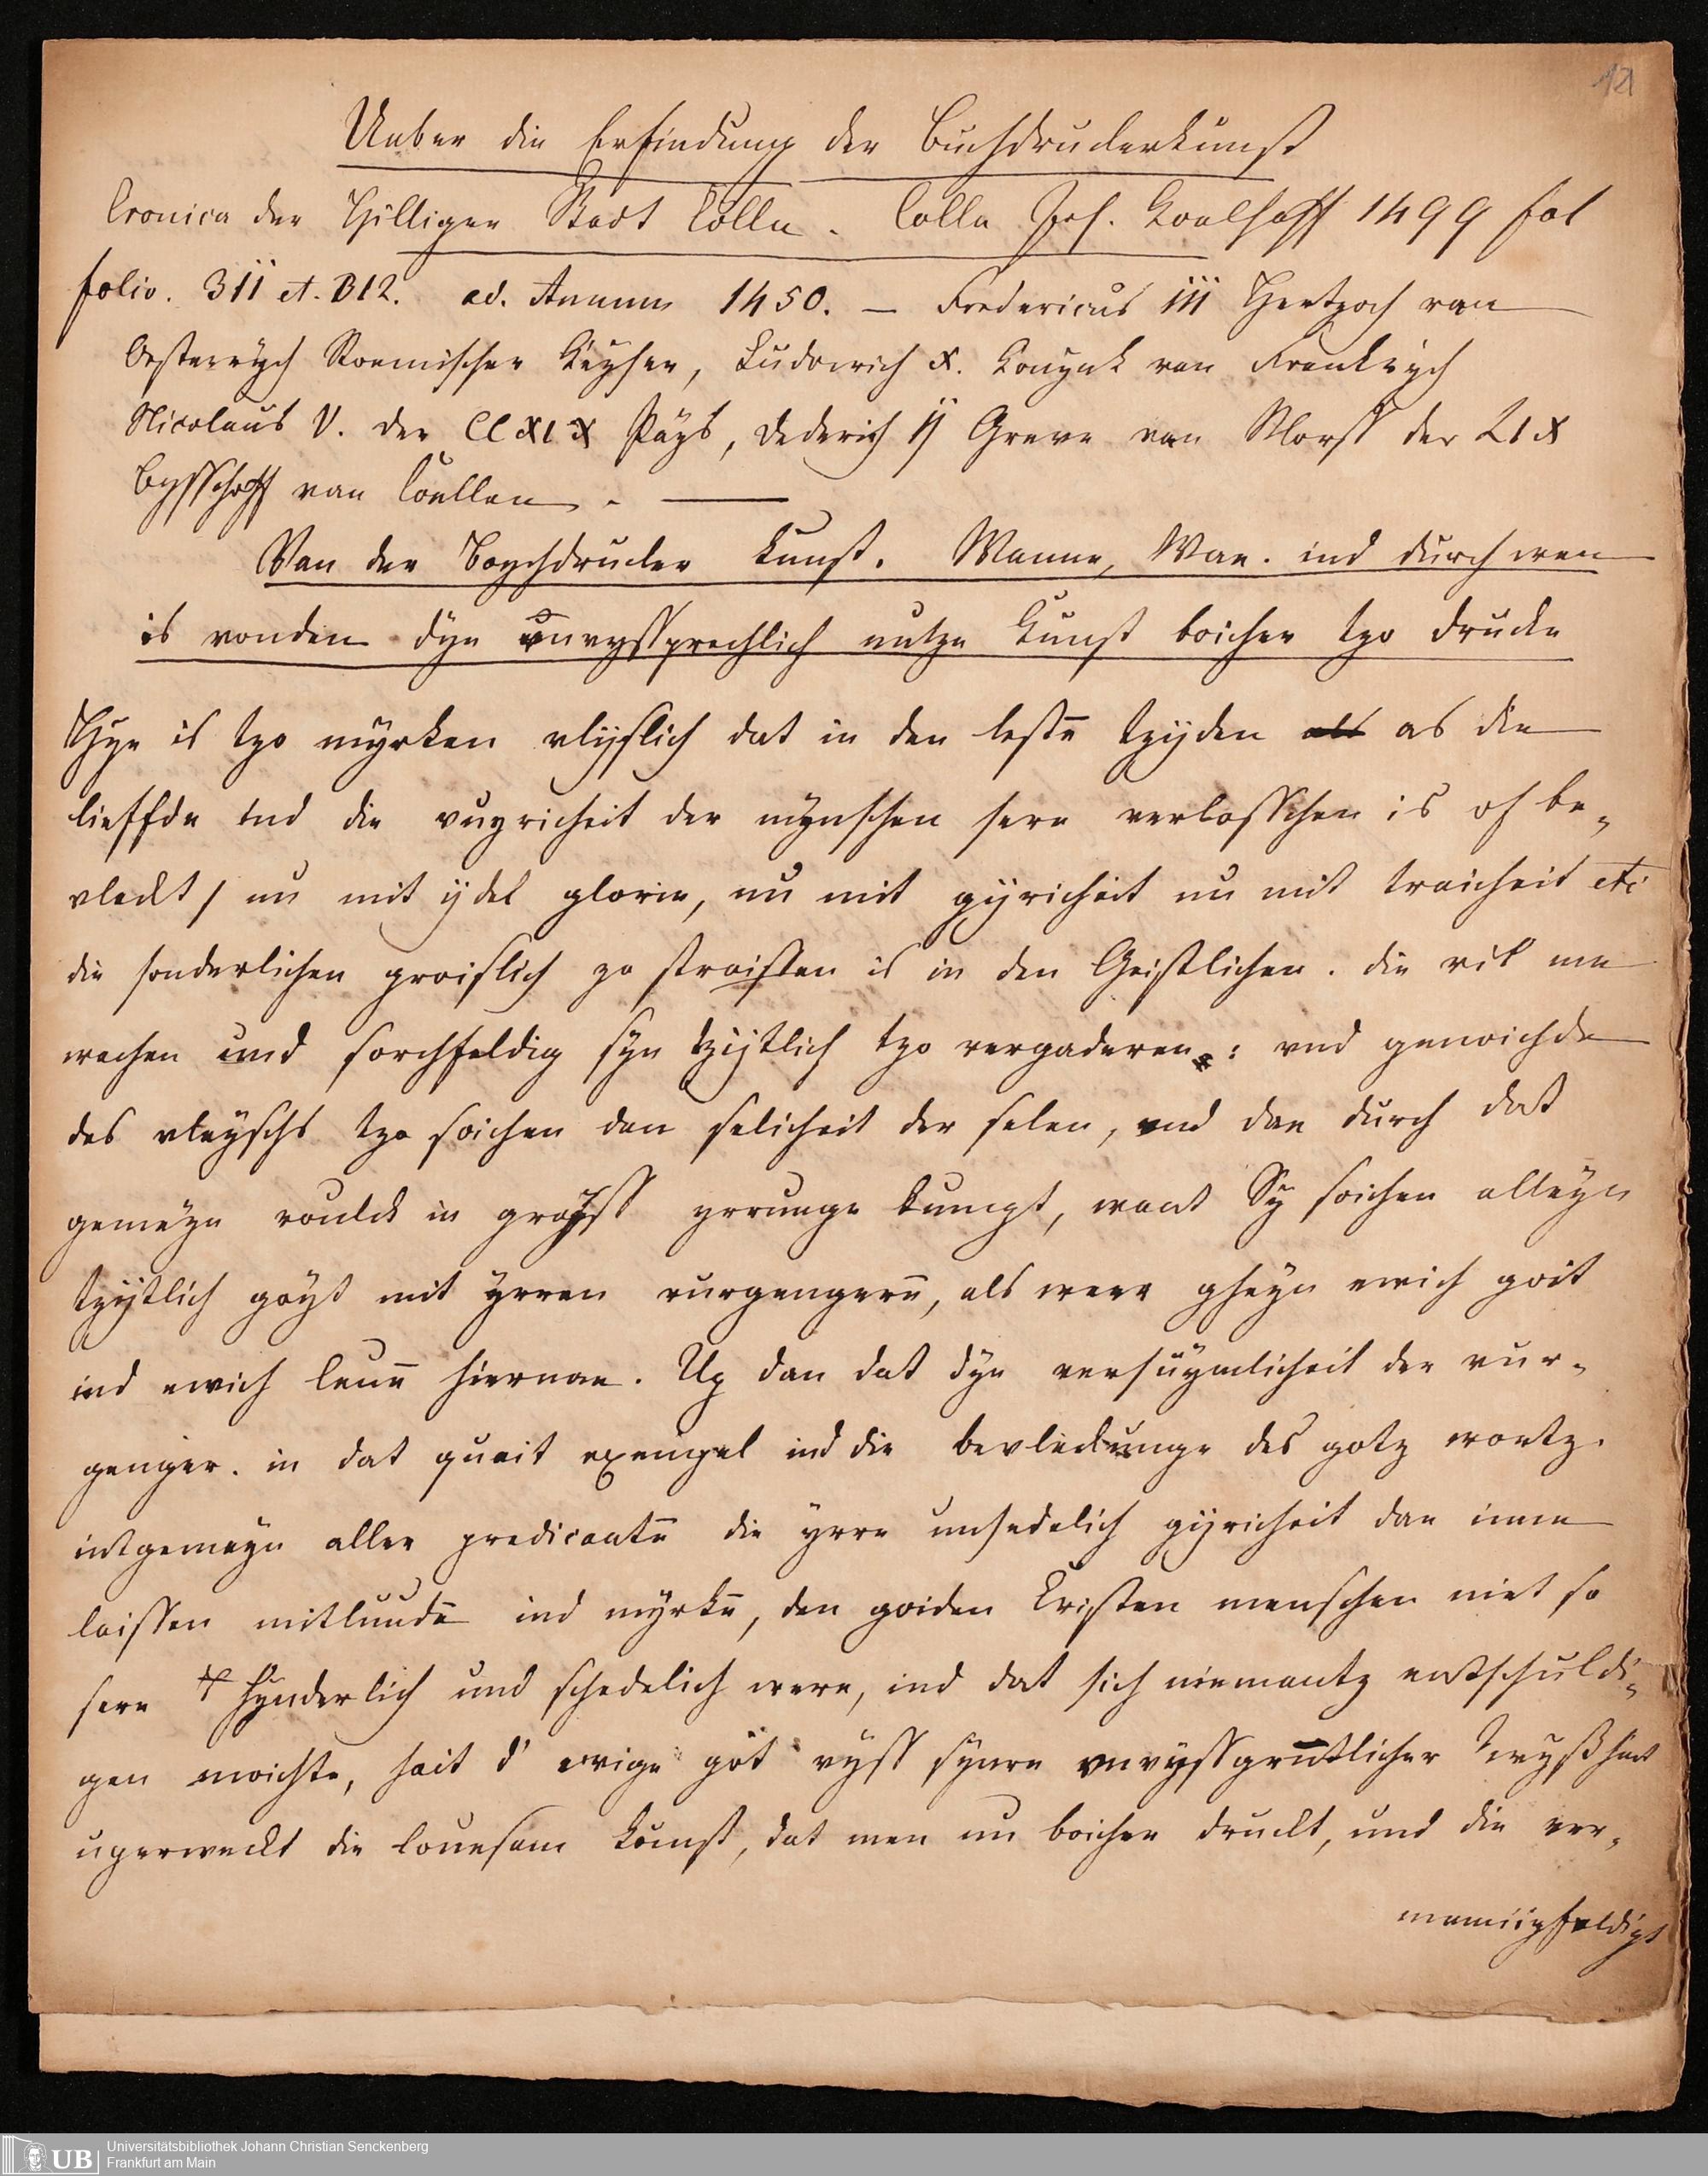 12
Ueber die Erfindung der Buchdruckerkunst
Cronica der Hilliger Stadt Cölln. Cölln Joh. Koelhoff 1499 fol
folio. 311 et. 312. ad. Annum 1450. — Fredericus III Hertzoch van
Oesterrych Roemischer Keyser, Ludowich X. Konynk van Frankrych
Nicolaus V. der CCXIX Pays, Dederich II Greve van Morss der LIX
Bysschoff van Coellen. —
Van der Boychdrucker kunst. Wanne, Wae. ind durch wen
is vonden dye unvyssprechlich nutze kunst boicher tzo drucke
Hye is tzo myrken vlyslich dat in den leste͞ tzyden as die
lieffde ind die vuyricheit der mynschen sere verlosschen is of be„
vleckt / nu mit ydel glorie, nu mit gyricheit nu mit traicheit etc
die sonderlichen groislich zo straiffen is in den Geistlichen. die vil me
wachen und sorchfeldig syn tzijtlich tzo vergaderen: und genoichde
des vleyschs tzo soichen dan selicheit der selen, und dae durch dat
gemeyn vonlck in groyss yrrunge kumpt, want Sy soichen alleyn
tzijtlich goyt mit yrren vurgengere͞, als were gheyn ewich goit
ind ewich leue͞ hiernae. Up dan dat dye versuymlicheit der vur-
genger. in dat quait exempel ind die bevleckunge des gotz wortz.
intgemeyn aller predicante͞ die yrre unsedelich gyricheit dae inne
laissen mitluude͞ ind myrke͞, den goiden Cristen menschen niet so
sere hynderlich und schedelich were, ind dat sich niemantz entschuldi„
gen moichte, hait d' ewige got vyss synre unvyssgrutlicher wyssheit
uperweckt die louesam kunst, dat men nu boicher druckt, und die ver„
mannigfeldigt
UB
Universitätsbibliothek Johann Christian Senckenberg
Frankfurt am Main